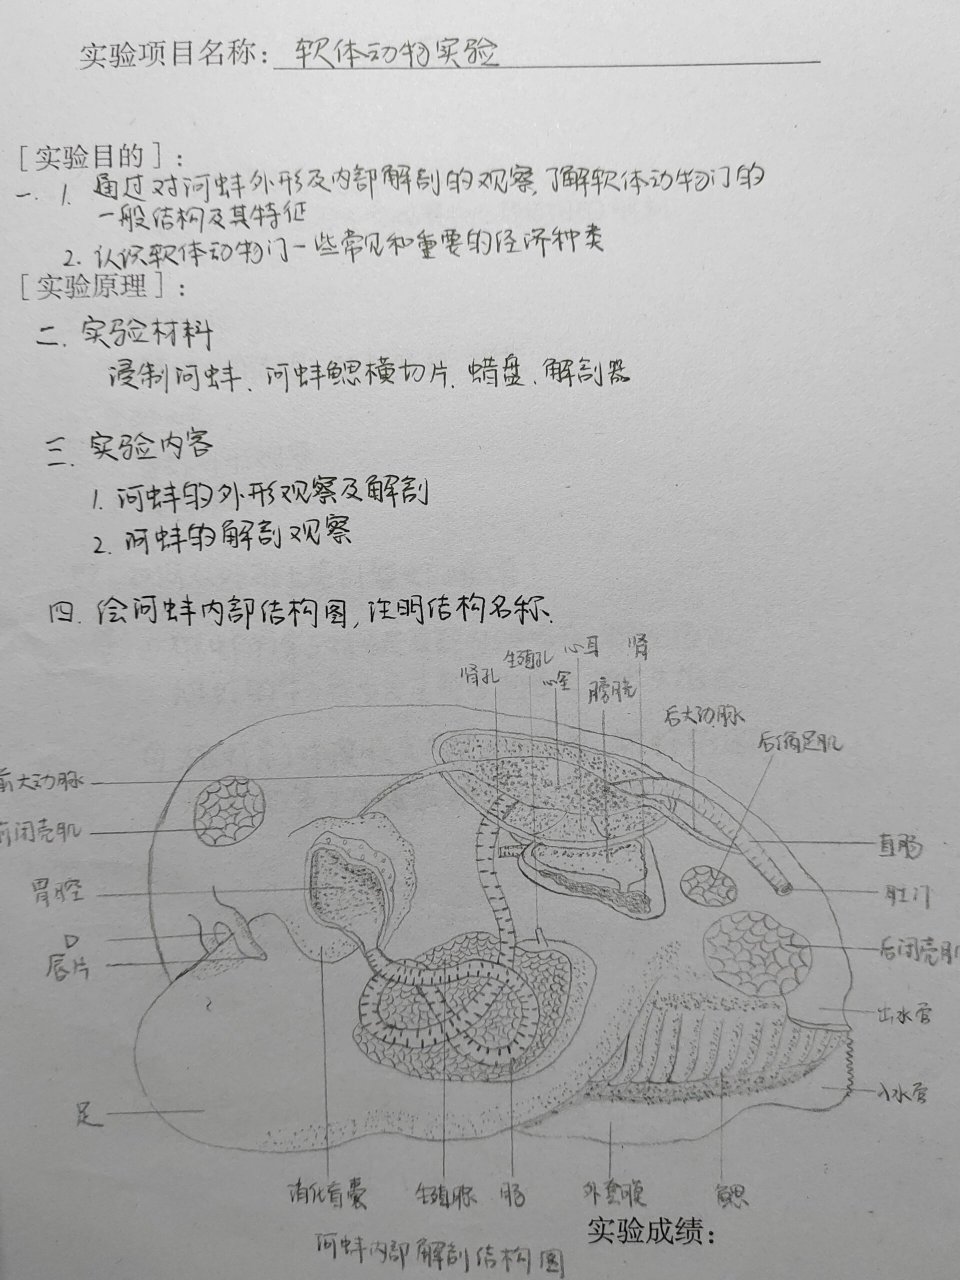 实验项目名称: 软体动物实验
[实验目的]:
一. 1. 通过对河蚌外形及内部解剖的观察,了解软体动物门的
一般结构及其特征
2. 认识软体动物门一些常见和重要的经济种类
[实验原理]:
二. 实验材料
浸制河蚌、河蚌鳃横切片、蜡盘、解剖器
三. 实验内容
1. 河蚌的外形观察及解剖
2. 河蚌的解剖观察
四. 绘河蚌内部结构图,注明结构名称.
肾孔
生殖孔
心室
心耳
膀胱
肾
后大动脉
后缩足肌
前大动脉
前闭壳肌
胃腔
口
唇片
足
直肠
肛门
后闭壳肌
出水管
入水管
消化盲囊
生殖腺
肠
外套膜
鳃
实验成绩:
河蚌内部解剖结构图